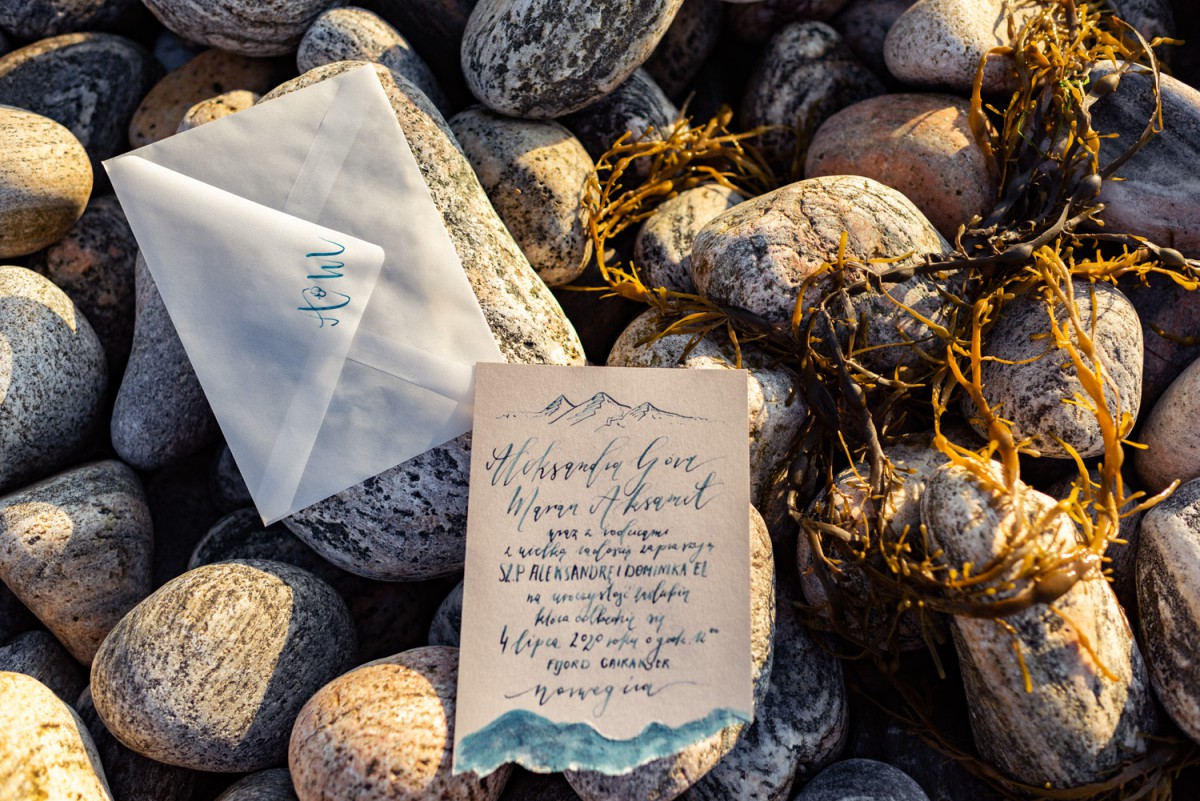 A&M
Aleksandra Góra
Marian Aksamit
wraz z rodzicami
z wielką radością zapraszają
SZ.P. ALEKSANDRĘ I DOMINIKA EL
na uroczystość zaślubin
która odbędzie się
4 lipca 2020 roku o godz.
FJORD GAIRANGER
Norwegia